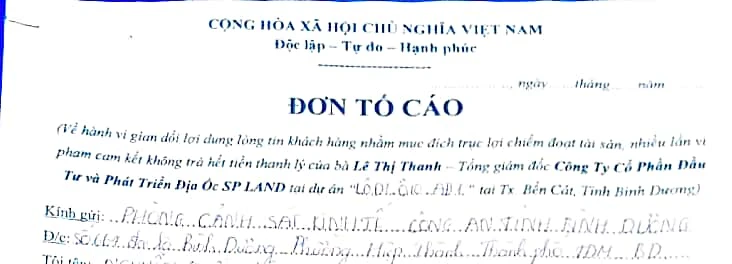 CỘNG HÒA XÃ HỘI CHỦ NGHĨA VIỆT NAM
Độc lập – Tự do – Hạnh phúc
..............., ngày ......tháng......năm .........
ĐƠN TỐ CÁO
(Về hành vi gian dối lợi dụng lòng tin khách hàng nhằm mục đích trục lợi chiếm đoạt tài sản, nhiều lần vi
phạm cam kết không trả hết tiền thanh lý của bà Lê Thị Thanh – Tổng giám đốc Công Ty Cổ Phần Đầu
Tư và Phát Triển Địa Ốc SP LAND tại dự án " " tại Tx. Bến Cát, Tỉnh Bình Dương)
Kính gửi: PHÒNG CẢNH SÁT KINH TẾ CÔNG AN TỈNH BÌNH DƯƠNG
Đ/c: Bình Dương Phường Hiệp Thành Thành phố TDM BD
Tôi tên: